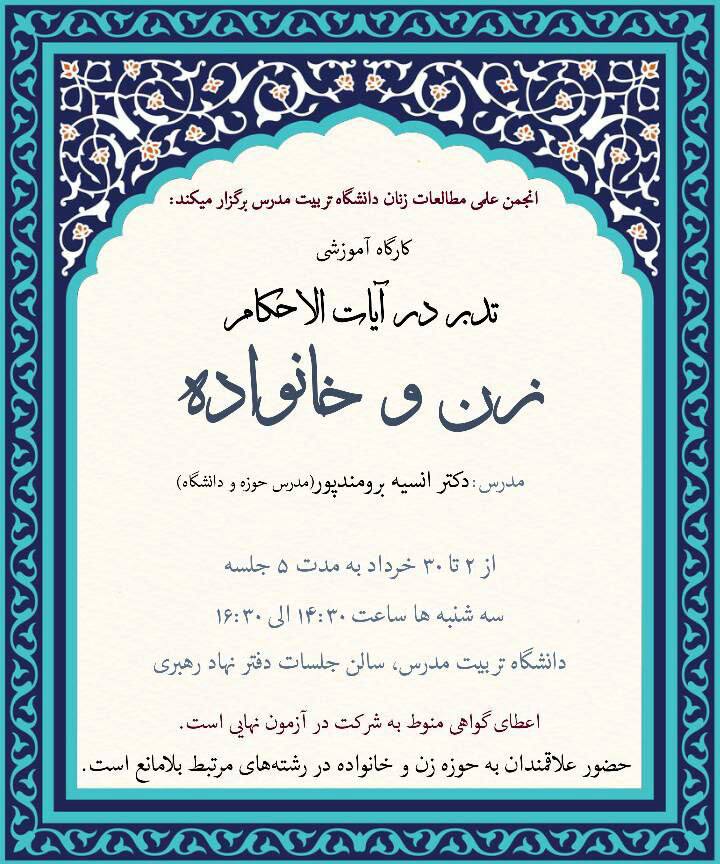 انجمن علمی مطالعات زنان دانشگاه تربیت مدرس برگزار میکند:
کارگاه آموزشی
تدبر در آیات الاحکام
زن و خانواده
مدرس:دکتر انسیه برومندپور(مدرس حوزه و دانشگاه)
از ۲ تا ۳۰ خرداد به مدت ۵ جلسه
سه شنبه ها ساعت ۱۴:۳۰ الی ۱۶:۳۰
دانشگاه تربیت مدرس، سالن جلسات دفتر نهاد رهبری
اعطای گواهی منوط به شرکت در آزمون نهایی است.
حضور علاقمندان به حوزه زن و خانواده در رشته‌های مرتبط بلامانع است.